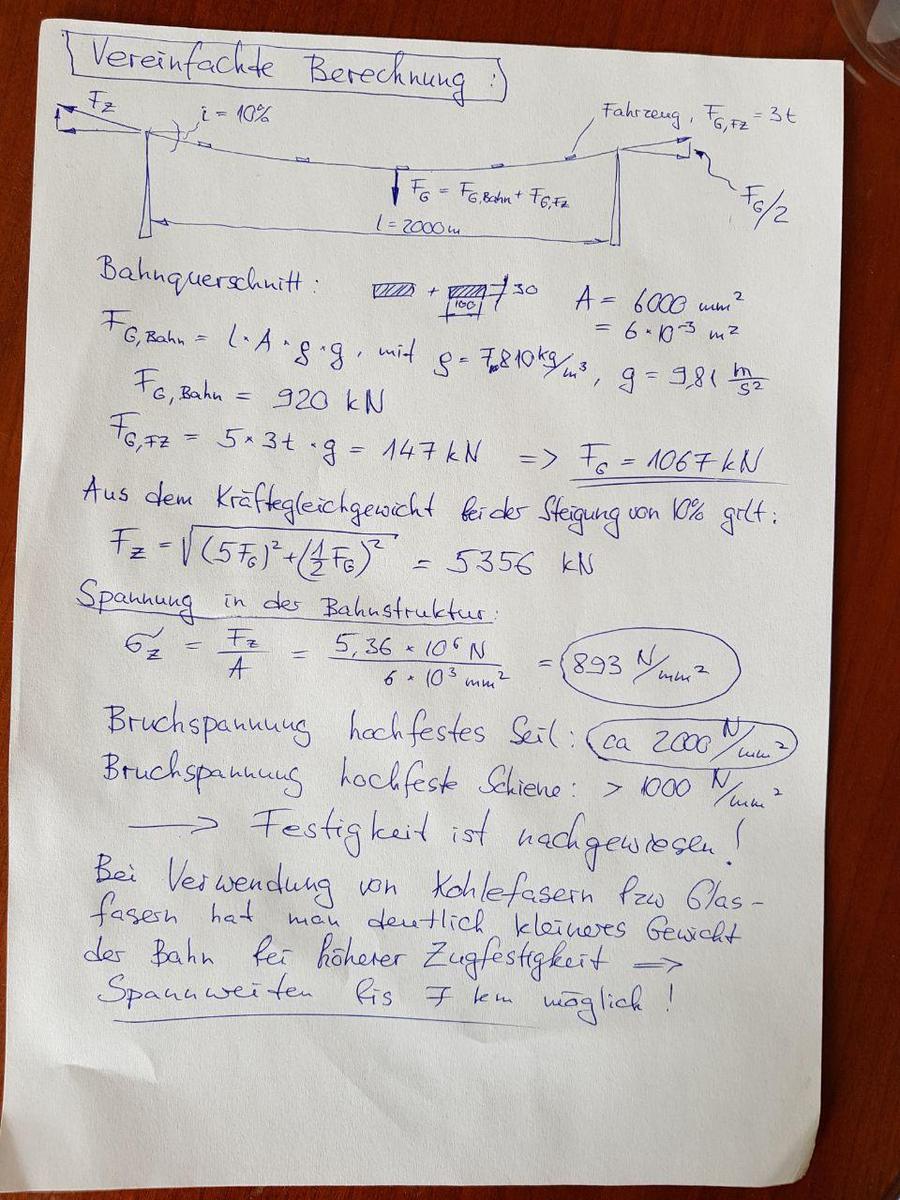 Vereinfachte Berechnung :
F_Z
i = 10%
Fahrzeug, F_G,FZ = 3t
F_G = F_G,Bahn + F_G,FZ
F_G/2
l = 2000m
Bahnquerschnitt: + 100 30 A = 6000 mm²
= 6 × 10⁻³ m²
F_G,Bahn = l · A · ρ · g, mit ρ = 7.810 kg/m³, g = 9,81 m/s²
F_G,Bahn = 920 kN
F_G,FZ = 5 × 3t · g = 147 kN => F_G = 1067 kN
Aus dem Kräftegleichgewicht bei der Steigung von 10% gilt:
F_Z = √((5F_G)² + (1/2 F_G)²) = 5356 kN
Spannung in der Bahnstruktur:
σ_Z = F_Z/A = 5,36 × 10⁶ N / 6 × 10³ mm² = 893 N/mm²
Bruchspannung hochfestes Seil: ca 2000 N/mm²
Bruchspannung hochfeste Schiene: > 1000 N/mm²
→ Festigkeit ist nachgewiesen!
Bei Verwendung von Kohlefasern bzw Glas-
fasern hat man deutlich kleineres Gewicht
der Bahn bei höherer Zugfestigkeit =>
Spannweiten bis 7 km möglich!